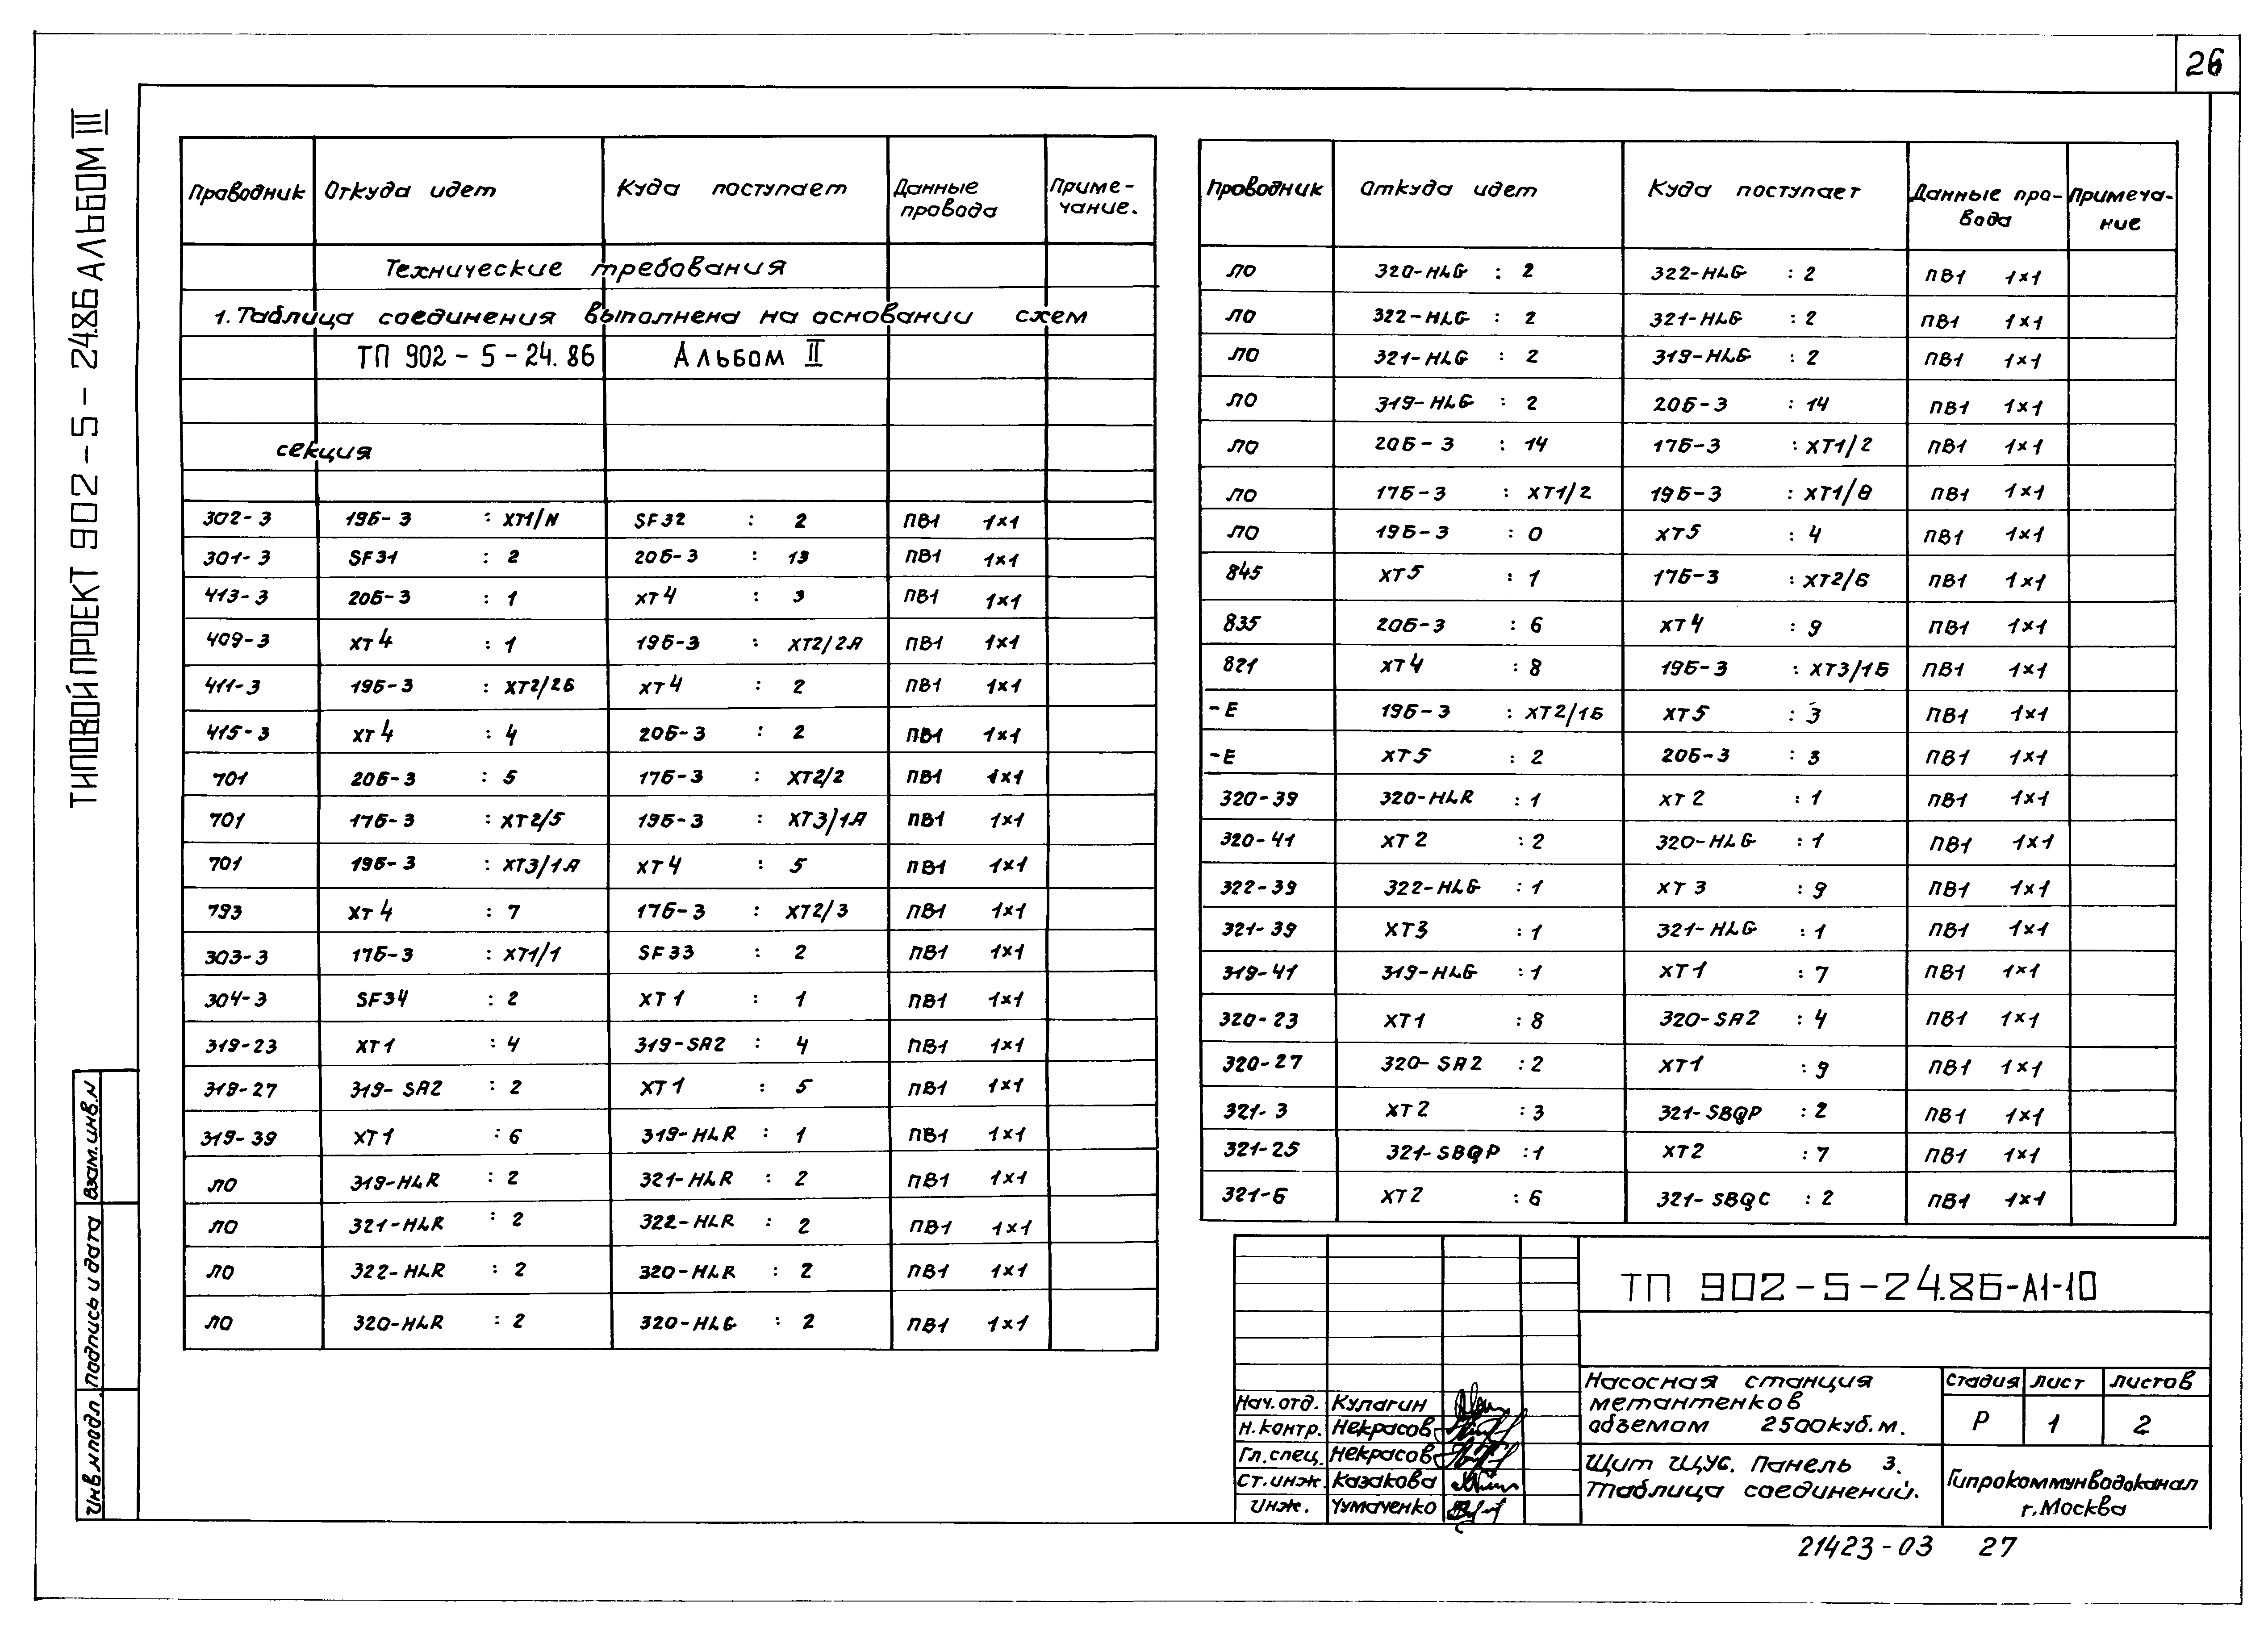 26
ТИПОВОЙ ПРОЕКТ 902-5-24.86 АЛЬБОМ III
Проводник Откуда идет Куда поступает Данные провода Примечание.
Технические требования
1. Таблица соединения выполнена на основании схем
ТП 902-5-24.86 Альбом II
секция
302-3 19Б-3 : XT1/N SF32 : 2 ПВ1 1×1
301-3 SF31 : 2 20Б-3 : 13 ПВ1 1×1
413-3 20Б-3 : 1 XT4 : 3 ПВ1 1×1
409-3 XT4 : 1 19Б-3 : XT2/2А ПВ1 1×1
411-3 19Б-3 : XT2/2Б XT4 : 2 ПВ1 1×1
415-3 XT4 : 4 20Б-3 : 2 ПВ1 1×1
701 20Б-3 : 5 17Б-3 : XT2/2 ПВ1 1×1
701 17Б-3 : XT2/5 19Б-3 : XT3/1А ПВ1 1×1
701 19Б-3 : XT3/1А XT4 : 5 ПВ1 1×1
793 XT4 : 7 17Б-3 : XT2/3 ПВ1 1×1
303-3 17Б-3 : XT1/1 SF33 : 2 ПВ1 1×1
304-3 SF34 : 2 XT1 : 1 ПВ1 1×1
319-23 XT1 : 4 319-SA2 : 4 ПВ1 1×1
319-27 319-SA2 : 2 XT1 : 5 ПВ1 1×1
319-39 XT1 : 6 319-HLR : 1 ПВ1 1×1
ЛО 319-HLR : 2 321-HLR : 2 ПВ1 1×1
ЛО 321-HLR : 2 322-HLR : 2 ПВ1 1×1
ЛО 322-HLR : 2 320-HLR : 2 ПВ1 1×1
ЛО 320-HLR : 2 320-HLG : 2 ПВ1 1×1
Проводник Откуда идет Куда поступает Данные провода Примечание
ЛО 320-HLG : 2 322-HLG : 2 ПВ1 1×1
ЛО 322-HLG : 2 321-HLG : 2 ПВ1 1×1
ЛО 321-HLG : 2 319-HLG : 2 ПВ1 1×1
ЛО 319-HLG : 2 20Б-3 : 14 ПВ1 1×1
ЛО 20Б-3 : 14 17Б-3 : XT1/2 ПВ1 1×1
ЛО 17Б-3 : XT1/2 19Б-3 : XT1/0 ПВ1 1×1
ЛО 19Б-3 : 0 XT5 : 4 ПВ1 1×1
845 XT5 : 1 17Б-3 : XT2/6 ПВ1 1×1
835 20Б-3 : 6 XT4 : 9 ПВ1 1×1
821 XT4 : 8 19Б-3 : XT3/1Б ПВ1 1×1
-E 19Б-3 : XT2/1Б XT5 : 3 ПВ1 1×1
-E XT5 : 2 20Б-3 : 3 ПВ1 1×1
320-39 320-HLR : 1 XT2 : 1 ПВ1 1×1
320-41 XT2 : 2 320-HLG : 1 ПВ1 1×1
322-39 322-HLG : 1 XT3 : 9 ПВ1 1×1
321-39 XT3 : 1 321-HLG : 1 ПВ1 1×1
319-41 319-HLG : 1 XT1 : 7 ПВ1 1×1
320-23 XT1 : 8 320-SA2 : 4 ПВ1 1×1
320-27 320-SA2 : 2 XT1 : 9 ПВ1 1×1
321-3 XT2 : 3 321-SBQP : 2 ПВ1 1×1
321-25 321-SBQP : 1 XT2 : 7 ПВ1 1×1
321-6 XT2 : 6 321-SBQC : 2 ПВ1 1×1
ТП 902-5-24.86-А1-10
Насосная станция
метантенков
обземом 2500куб.м.
Стадия Лист Листов
Р 1 2
Щит ЩУ6. Панель 3.
Таблица соединений.
Гипрокоммунводоканал
г. Москва
Нач.отд. Кулагин
Н.контр. Некрасов
Гл.спец. Некрасов
Ст.инж. Казакова
Инж. Чумаченко
Взам.инв.N
Подпись и дата
Инв.N подл.
21423-03 27